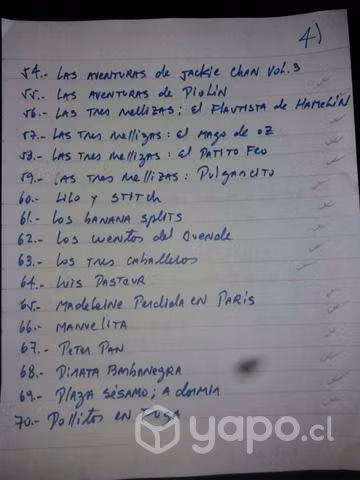 4)
54.- LAS AVENTURAS de JACKIE CHAN VOL.3
55.- LAS AVENTURAS de PIOLIN
56.- LAS TRES MELLIZAS; El FLAUTISTA DE HAMELIN
57.- LAS TRES MELLIZAS: El MAGO de OZ
58.- LAS TRES MELLIZAS: El PATITO FEO
59.- LAS TRES MELLIZAS: Pulgarcito
60.- LILO y STITCH
61.- LOS BANANA SPLITS
62.- LOS CUENTOS del DUENDE
63.- LOS TRES CABALLEROS
64.- LUIS PASTEUR
65.- MADELEINE PERDIDA EN PARIS
66.- MANUELITA
67.- PETER PAN
68.- PIRATA BARBANEGRA
69.- PLAZA SÉSAMO; A DORMIR
70.- POLLITOS EN FUGA
yapo.cl